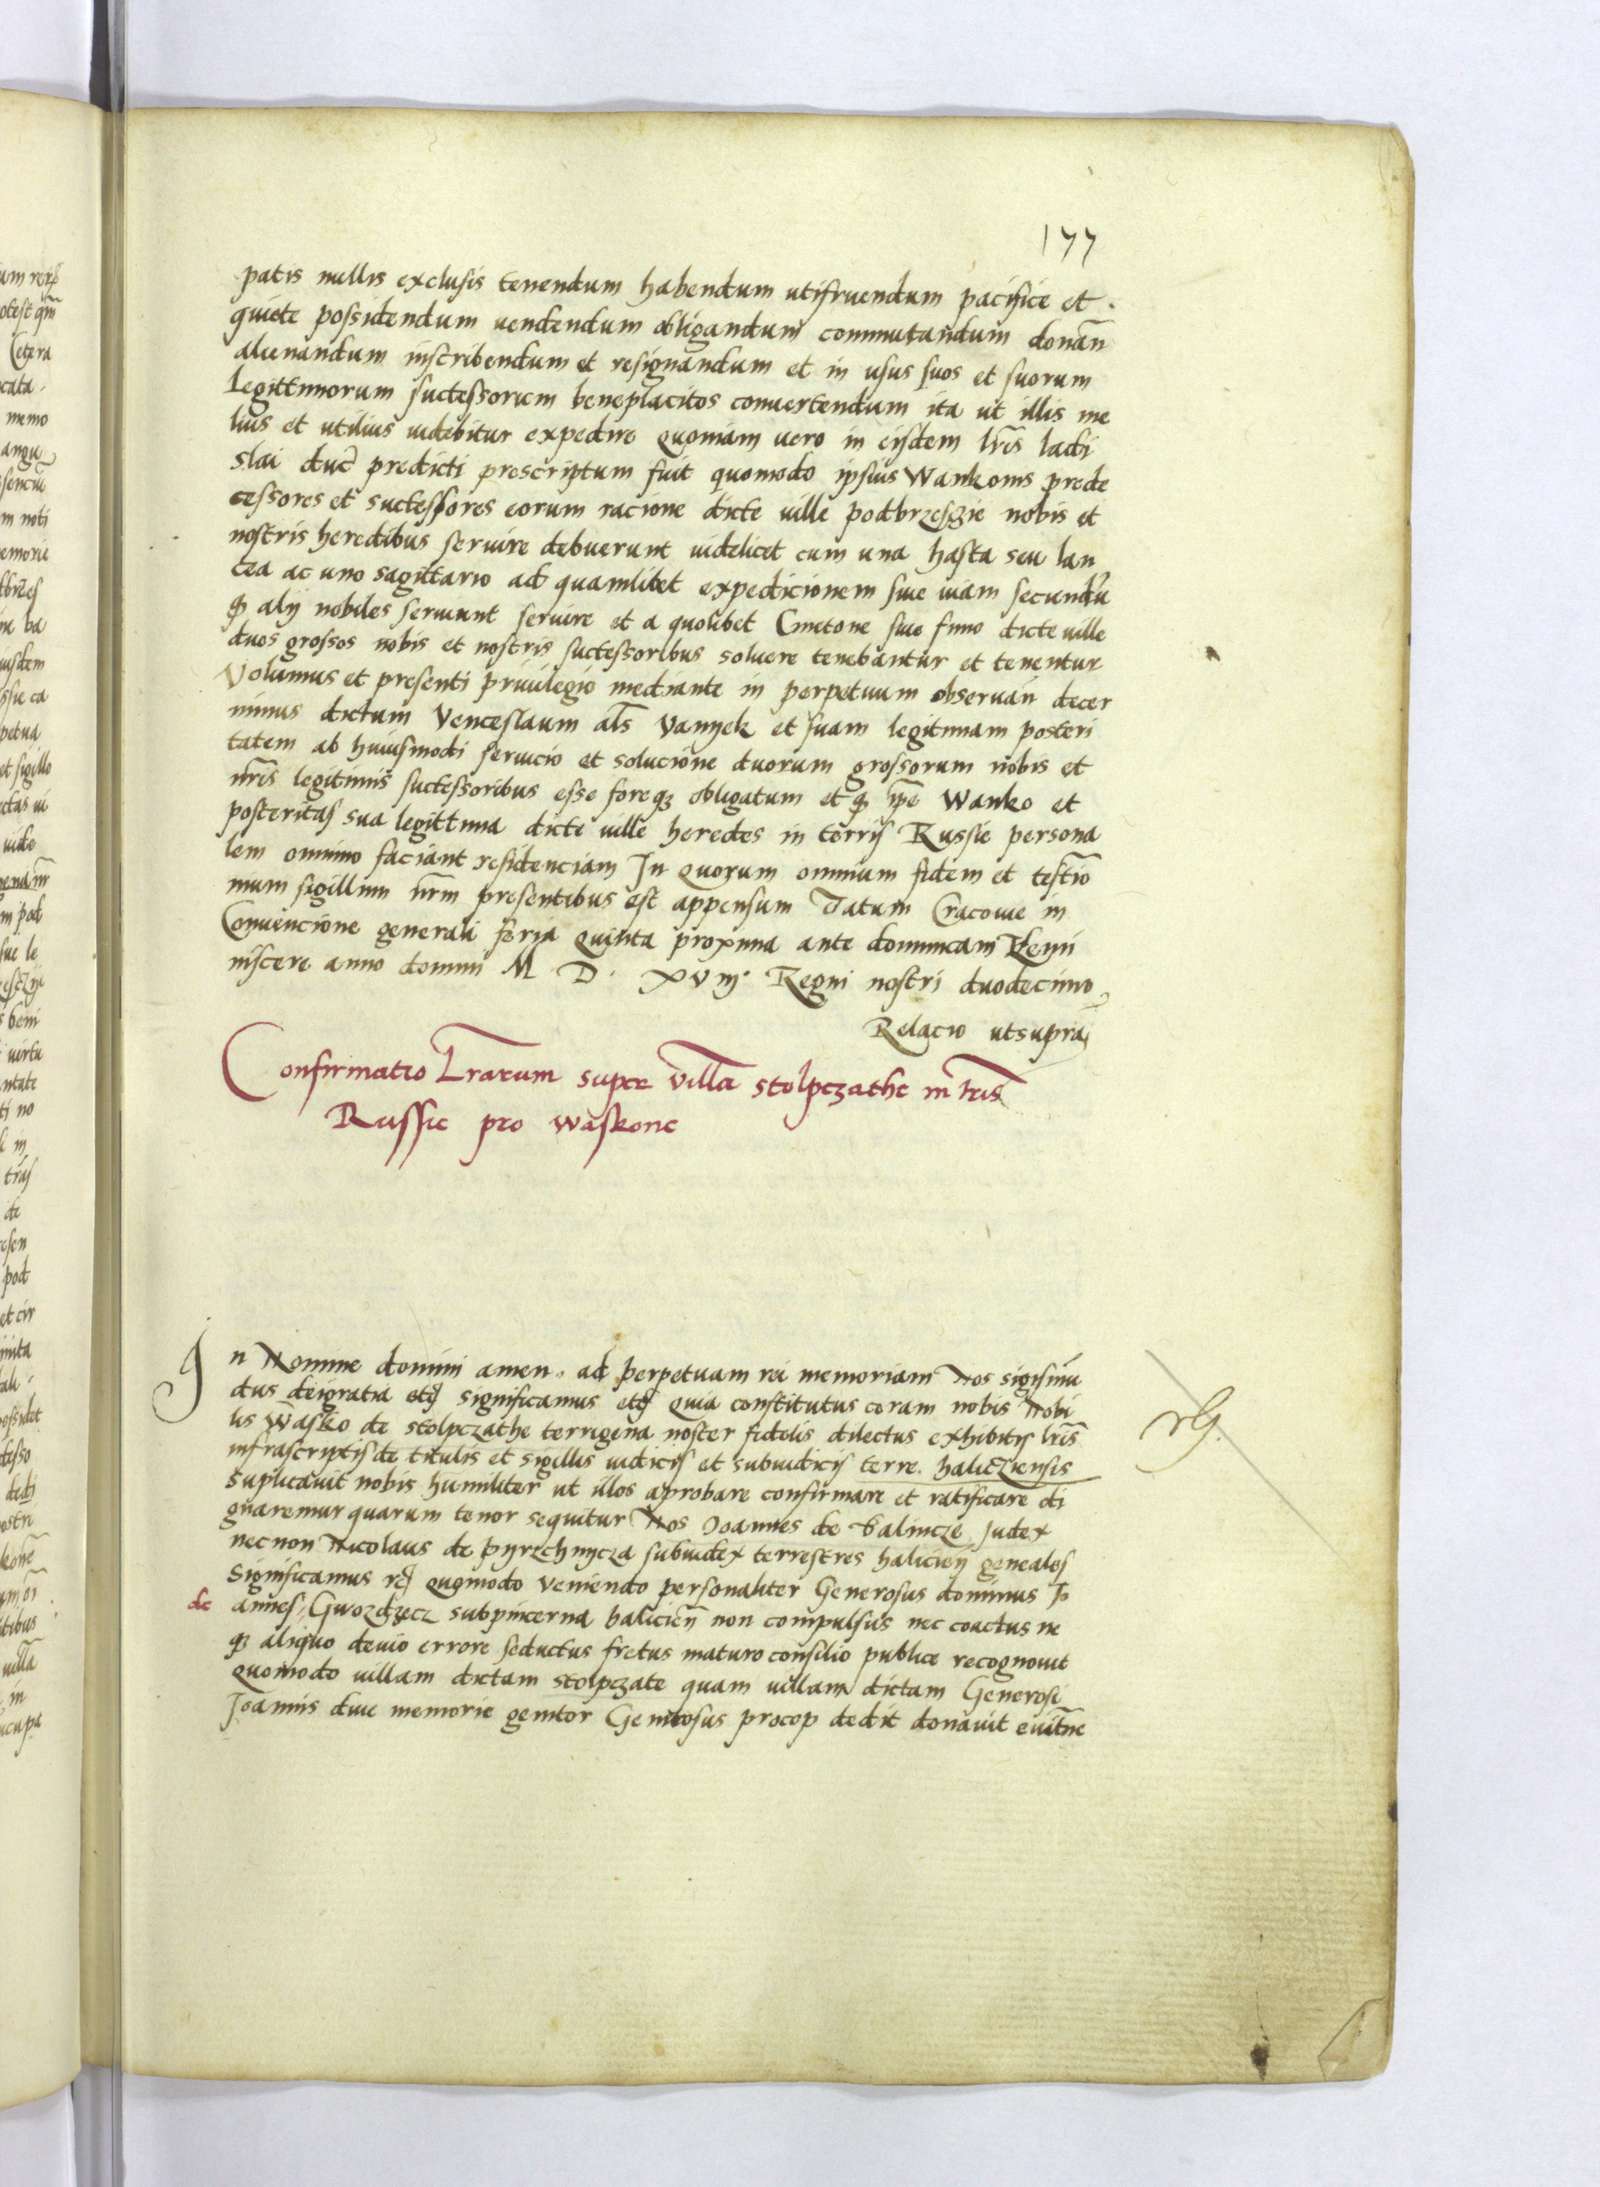 177
patis nullis exclusis tenendum habendum utifruendum pacifice et
quiete possidendum uendendum obligandum commutandum donan̄
alienandum inscribendum et resignandum et in usus suos et suorum
Legittimorum successorum beneplacitos conuertendum ita ut illis me
lius et utilius uidebitur expedire quoniam uero in eisdem lr̄is ladi
slai duc̄ predicti prescriptum fuit quomodo ipsius Wankonis prede
cessores et successores eorum racione dicte uille podbrzesgie nobis et
nostris heredibus seruire debuerunt uidelicet cum una hasta seu lan
cea ac uno sagittario ad quamlibet expedicionem siue uiam secundū
qȝ alij nobiles seruiunt seruire et a quolibet Cmetone siue fumo dicte uille
duos grossos nobis et nostris successoribus soluere tenebantur et tenentur
Volumus et presenti priuilegio mediante in perpetuum obseruan̄ decer
nimus dictum Venceslaum al̄s Vanyek et suam legitimam posteri
tatem ab huiusmodi seruicio et solucione duorum grossorum nobis et
nr̄is legitimis successoribus esse foreqȝ obligatum et qȝ ip̄e Wanko et
posteritas sua legittima dicte uille heredes in terris Russie persona
lem omnino faciant residenciam In quorum omnium fidem et testīo
nium sigillum nr̄m presentibus est appensum Datum Cracouie in
Conuencione generali feria quinta proxima ante dominicam Remi
niscere anno domini M. D. XVIIJ. Regni nostri duodecimo
Relacio ut supra
Confirmatio Lr̄arum super villā stolpczathe in tr̄is
Russie pro waskone
In Nomine domini amen. ad perpetuam rei memoriam Nos sigismū
dus deigratia etc̄ significamus etc̄ quia constitutus coram nobis Nobi
lis Wasko de stolpczathe terrigena noster fidelis dilectus exhibitis lr̄is
infrascriptis de titulis et sigillis iudicis et subiudicis terre. halicziensis
suplicauit nobis humiliter ut illos aprobare confirmare et ratificare di
gnaremur quarum tenor sequitur Nos Joannes de balincze Judex
necnon Nicolaus de pyrzchnycza subiudex terrestres halicien̄ geneales
Significamus qūomodo veniendo personaliter Generosus dominus Jo
de annes, Gwozdzecz subpincerna halicien̄ non compulsus nec coactus ne
qȝ aliquo deuio errore seductus fretus maturo consilio publice recognouit
quomodo uillam dictam stolpczate quam uillam dictam Generosi
Joannis diue memorie genitor Generosus procop dedit donauit
rG.